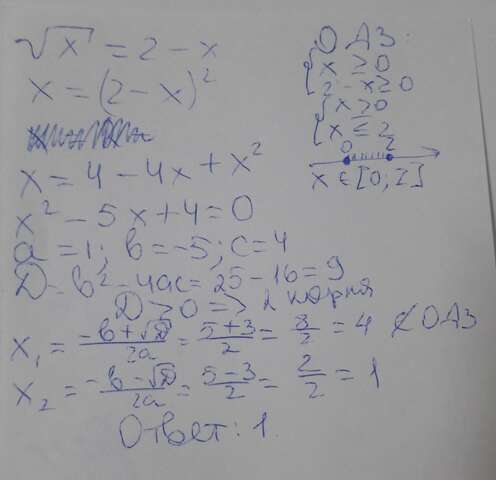 √x = 2 - x
x = (2 - x)²
x = 4 - 4x + x²
x² - 5x + 4 = 0
a = 1; b = -5; c = 4
D = b² - 4ac = 25 - 16 = 9
D > 0 => 2 корня
x₁ = (-b + √D)/2a = (5 + 3)/2 = 8/2 = 4 ∉ ОДЗ
x₂ = (-b - √D)/2a = (5 - 3)/2 = 2/2 = 1
Ответ: 1.
ОДЗ:
{ x ≥ 0
2 - x ≥ 0
{ x ≥ 0
x ≤ 2
0 2
x ∈ [0; 2]